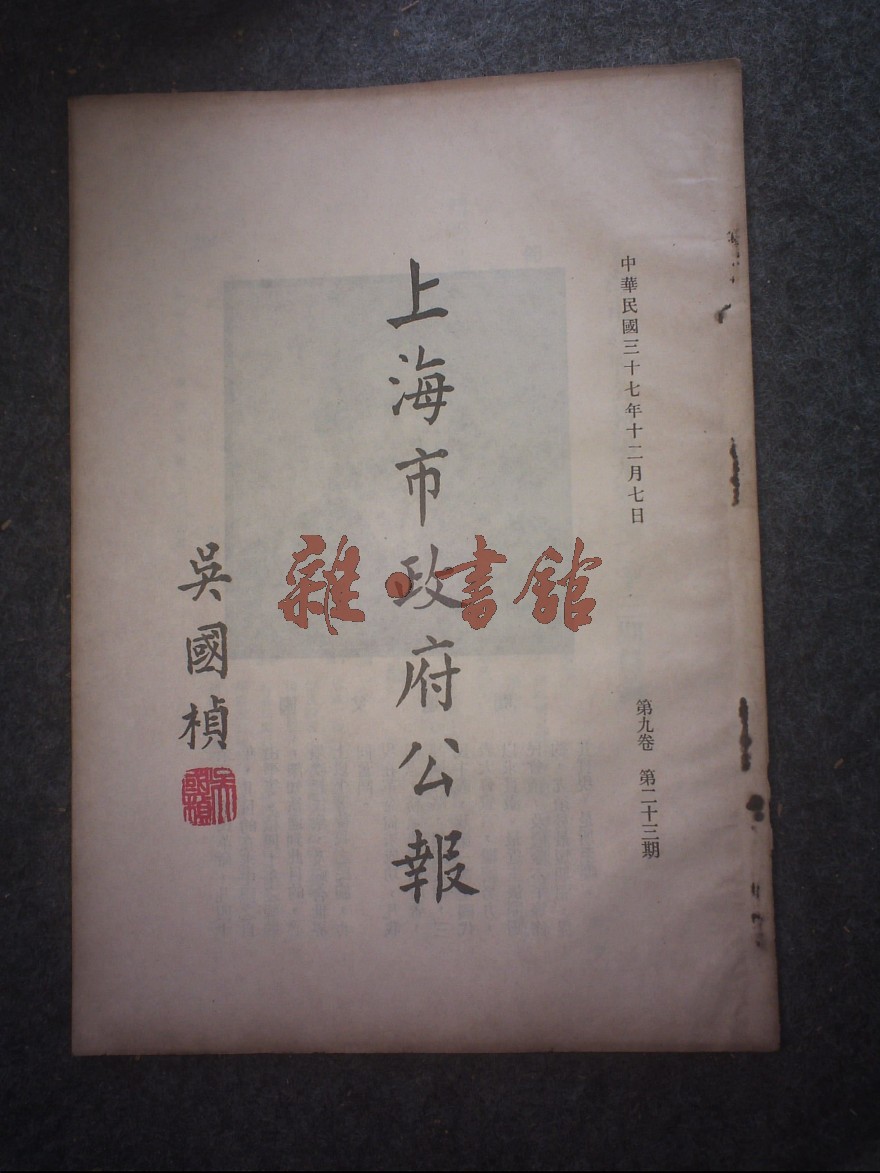 中華民國三十七年十二月七日
第九卷 第二十三期
上海市政府公報
吳國楨
吳國楨
雜·書館